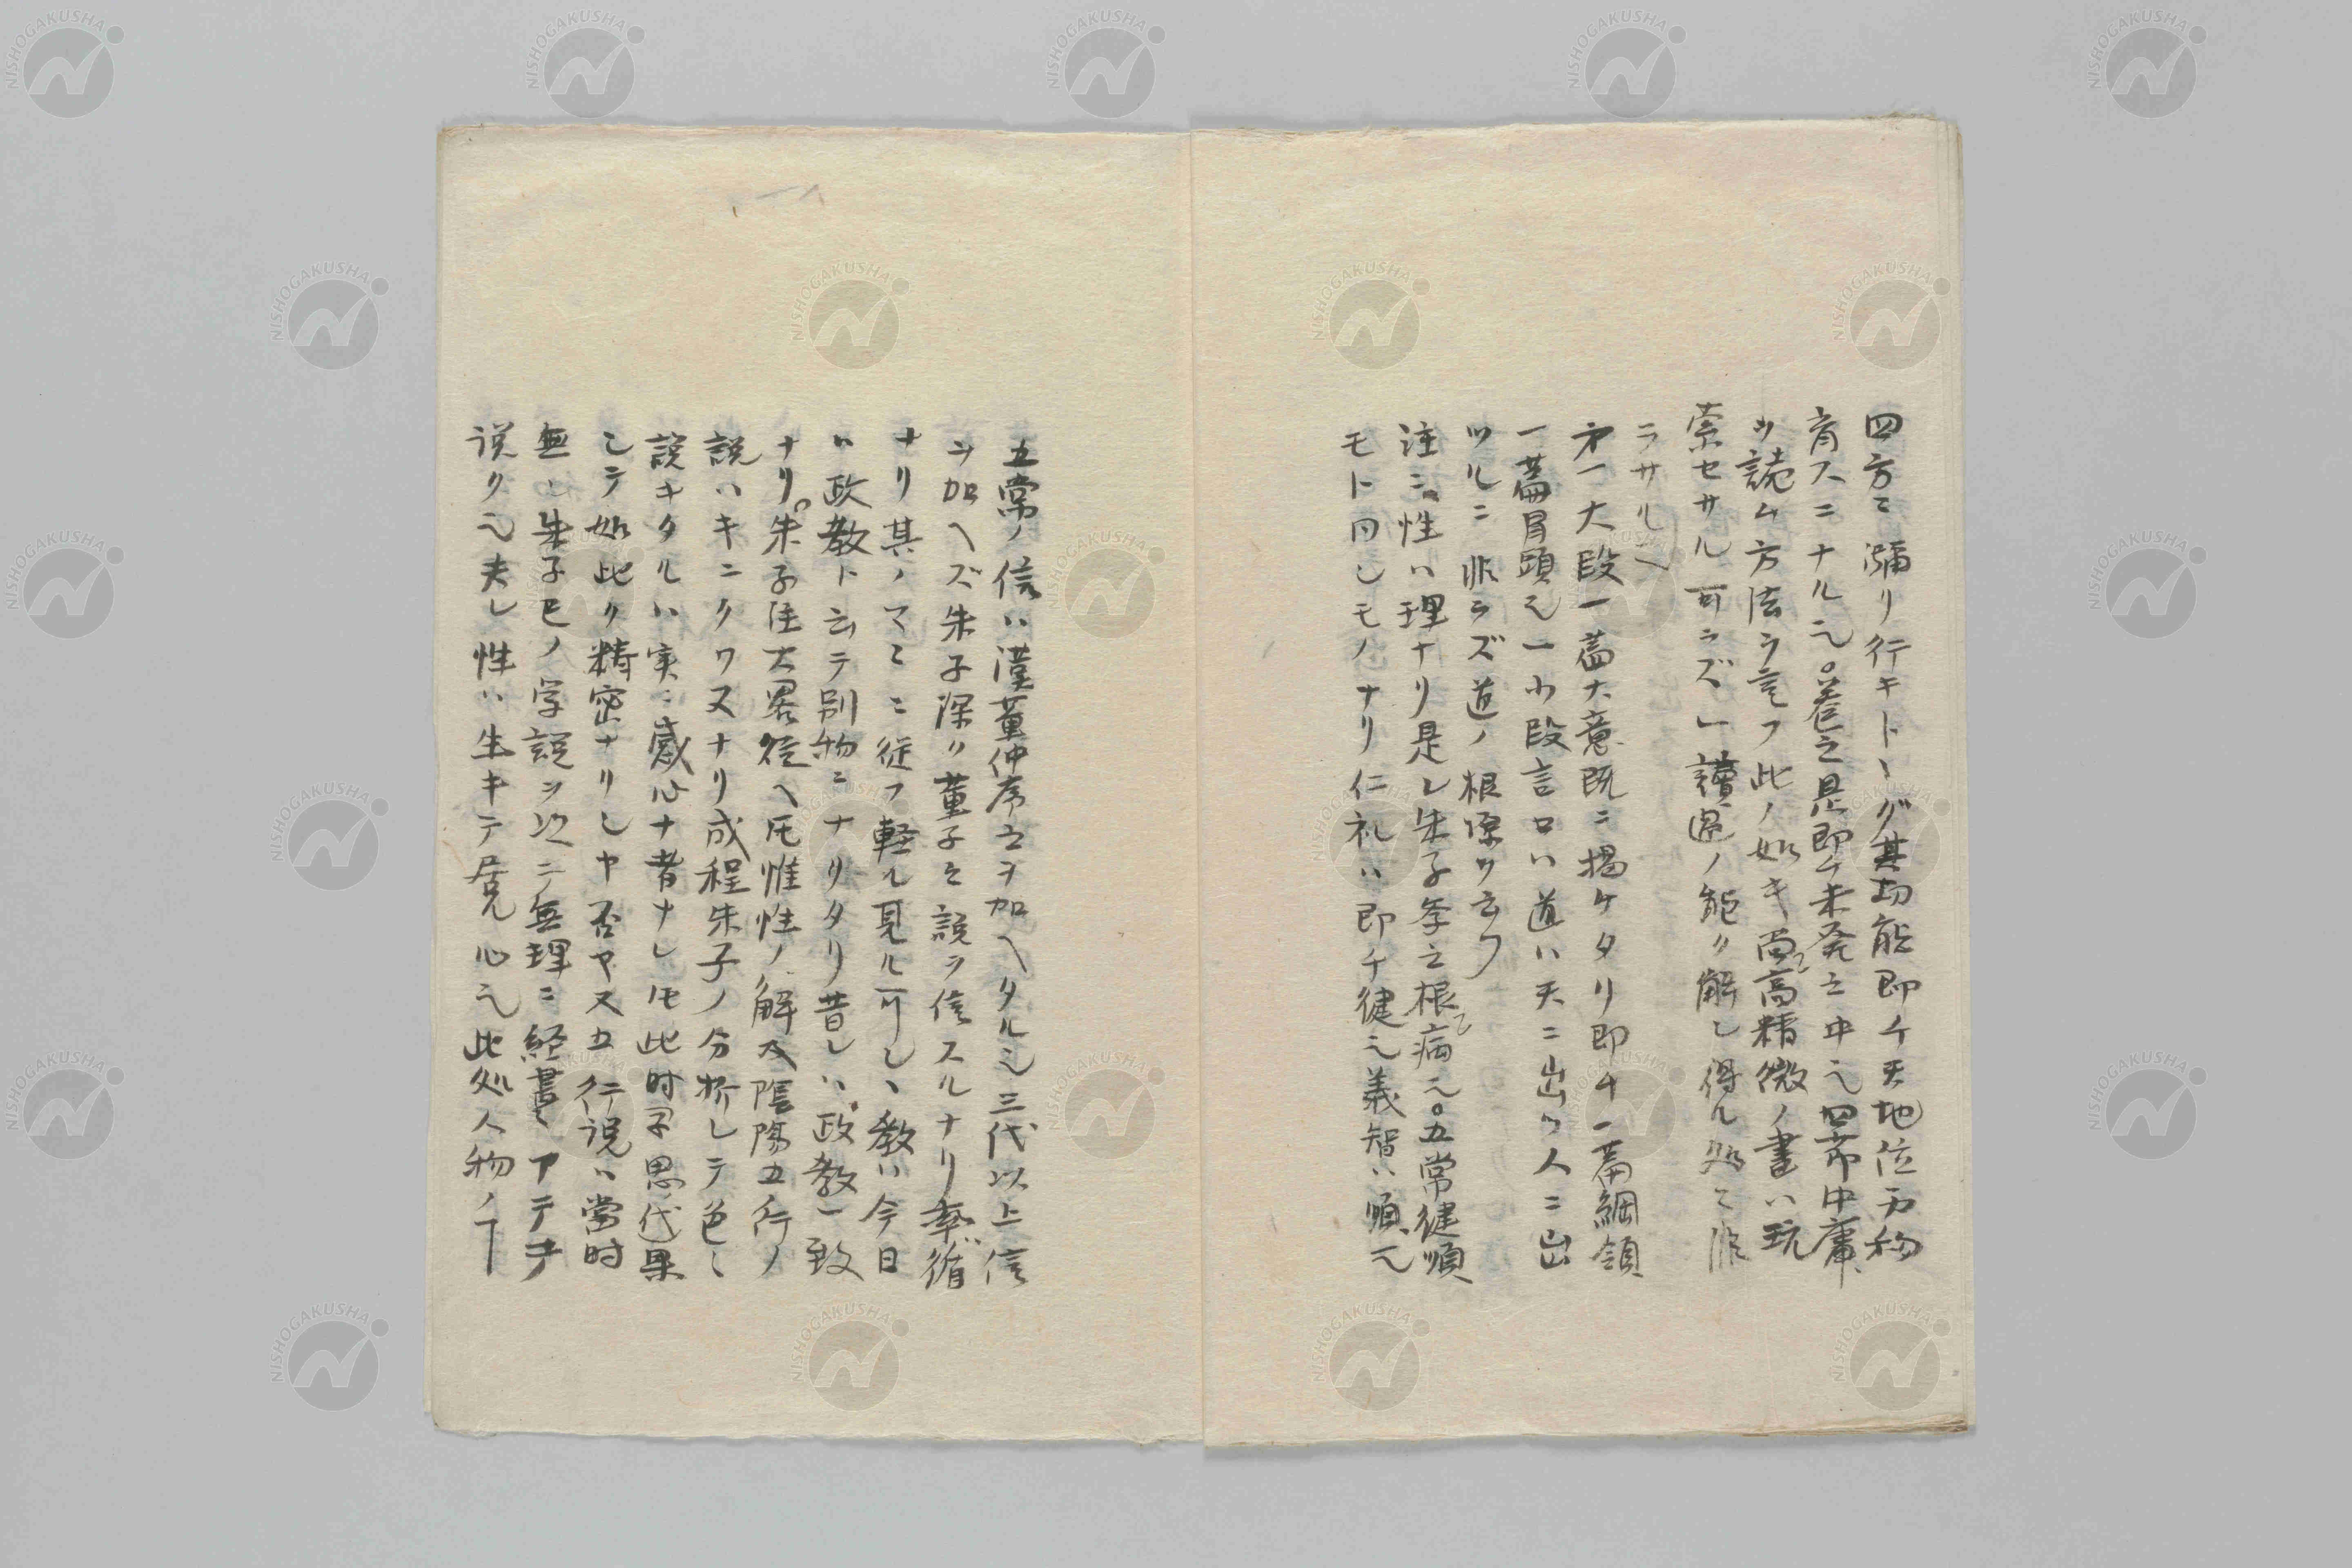 四方ニ瀰リ行キトヾグ其功能即チ天地位万物
育スニナル也。巻之是即チ未発之中也四节中庸
ヲ読ム方法ヲ言フ此ノ如キ高尚精微ノ書ハ玩
索セサル可ラズ一讀過ノ能ク解シ得ル処ニ非
ラサル也
才一大段一萹大意既ニ掲ケタリ即チ一萹綱領
一萹冒頭也一小段言ロハ道ハ天ニ出ツ人ニ出
ツルニ非ラズ道ノ根源ヲ云フ
注ニ性ハ理ナリ是レ朱子学之病根也。五常健順
モト同シモノナリ仁礼ハ即チ健也義智ハ順也
五常ノ信ハ漢董仲舒之ヲ加ヘタル也三代以上信
ヲ加ヘズ朱子深ク董子之説ヲ信スルナリ率循
ナリ其ノマヽニ従フ軽ル見ル可シ、教ハ今日
ハ政教ト云テ別物ニナリタリ昔シハ政教一致
ナリ。朱子注大畧従ヘ𪜈惟性ノ解及陰陽五行ノ
説ハキニクワヌナリ成程朱子ノ分析シテ色〻
説キタルハ実ニ感心ナ者ナレ𪜈此时子思代果
シテ如此ク精密ナリシヤ否ヤ又五行説ハ當时
無シ朱子己ノ学説ヲ以テ無理ニ経書ヘアテヽ
说ク也夫レ性ハ生キテ居ル心也此処人物ノヿ